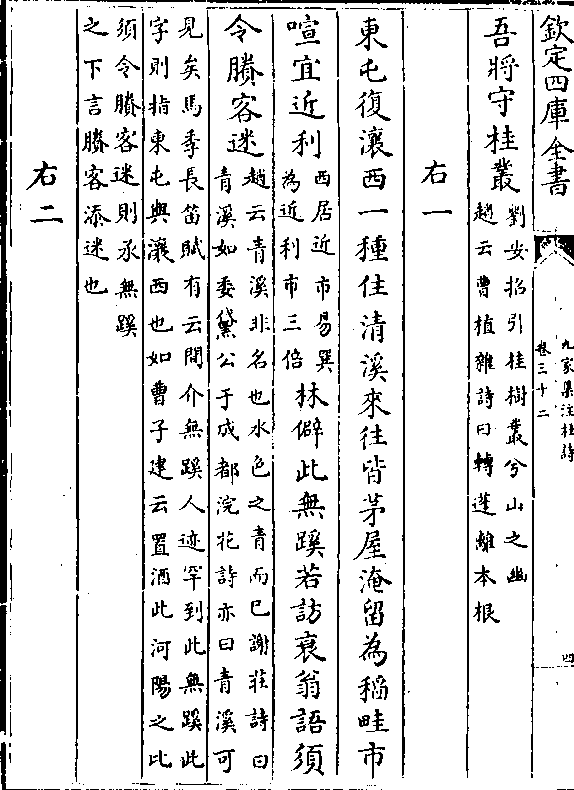 欽定四庫全書
九家集注杜詩
卷三十二
四
吾將守桂叢
劉安招引桂樹叢兮山之幽
趙云曹植雜詩曰轉蓬離本根
右一
東屯復瀼西一種住清溪來往皆茅屋淹留為稻畦市
喧宜近利
西居近市易巽
為近利市三倍
林僻此無蹊若訪衰翁語須
令賸客迷
趙云青溪非名也水色之青而已謝莊詩曰
青溪如委黛公于成都浣花詩亦曰青溪可
見矣馬季長笛賦有云間介無蹊人迹罕到此無蹊此
字則指東屯與瀼西也如曹子建云置酒此河陽之比
須令賸客迷則承無蹊
之下言賸客添迷也
右二